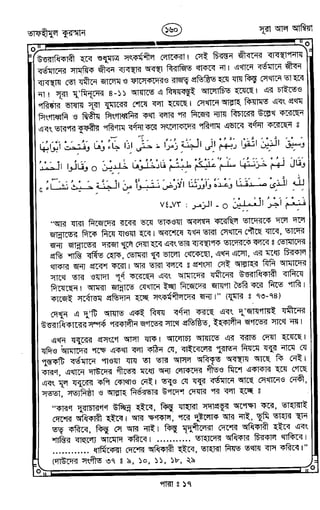 তাফহীমুল কুরআন
১৬০
সূরা আল আম্বিয়া
উত্তরাধিকারী হবে শুধুমাত্র সৎকর্মশীল লোকেরা। সেই চিরন্তন জীবনের ব্যবস্থাপনায়
বর্তমানের সাময়িক জীবন ব্যবস্থার অবস্থা বিরাজিত থাকবে না। এখানে বর্তমানে জীবন
ব্যবস্থায় তো যমীনে জালেম ও ফাসেকদেরও রাজত্ব প্রতিষ্ঠিত হয়ে যায় কিন্তু সেখানে তা হবে
না। সূরা মু'মিনূনের ৪-১১ আয়াতে এ বিষয়বস্তুই আলোচিত হয়েছে। এর চাইতেও
পরিষ্কার ভাষায় সূরা যুমারের শেষে বলা হয়েছে। সেখানে আল্লাহ কিয়ামত এবং প্রথম
সিংগাধ্বনি ও দ্বিতীয় সিংগাধ্বনির কথা বলার পর নিজের ন্যায় বিচারের উল্লেখ করেছেন
এবং তারপর কুফরীর পরিণাম বর্ণনা করে সৎলোকদের পরিণাম এভাবে বর্ণনা করেছেন ঃ
وَسِيقَ الَّذِينَ اتَّقَوْا رَبَّهُمْ إِلَى الْجَنَّةِ زُمَرًا ۖ حَتَّىٰ إِذَا جَاءُوهَا وَفُتِحَتْ أَبْوَابُهَا
وَقَالَ لَهُمْ خَزَنَتُهَا سَلَامٌ عَلَيْكُمْ طِبْتُمْ فَادْخُلُوهَا خَالِدِينَ ○ وَقَالُوا الْحَمْدُ
لِلَّهِ الَّذِي صَدَقَنَا وَعْدَهُ وَأَوْرَثَنَا الْأَرْضَ نَتَبَوَّأُ مِنَ الْجَنَّةِ حَيْثُ نَشَاءُ ۚ
فَنِعْمَ أَجْرُ الْعَامِلِينَ ○ - الزمر : ٧٣،٧٤
"আর যারা নিজেদের রবের ভয়ে তাকওয়া অবলম্বন করেছিল তাদেরকে দলে দলে
জান্নাতের দিকে নিয়ে যাওয়া হবে। অবশেষে যখন তারা সেখানে পৌছে যাবে, তাদের
জন্য জান্নাতের দরজা খুলে দেয়া হবে এবং তার ব্যবস্থাপক তাদেরকে বলবে ঃ তোমাদের
প্রতি শান্তি বর্ষিত হোক, তোমরা খুব ভালো থেকেছো, এখন এসো, এর মধ্যে চিরকাল
থাকার জন্য প্রবেশ করো। আর তারা বলবে ঃ প্রশংসা সেই আল্লাহর যিনি আমাদের
সাথে তার ওয়াদা পূর্ণ করেছেন এবং আমাদের যমীনের উত্তরাধিকারী বানিয়ে
দিয়েছেন। আমরা জান্নাতে যেখানে ইচ্ছা নিজেদের জায়গা তৈরি করে নিতে পারি।
কাজেই সর্বোত্তম প্রতিদান হচ্ছে সৎকর্মশীলদের জন্য।" (যুমার ঃ ৭৩-৭৪)
দেখুন এ দু'টি আয়াত একই বিষয় বর্ণনা করছে এবং দু'জায়গায়ই যমীনের
উত্তরাধিকারের সম্পর্ক পরকালীন জগতের সাথে প্রতিষ্ঠিত, ইহকালীন জগতের সাথে নয়।
এখন যবুরের প্রসংগে আসা যাক। আলোচ্য আয়াতে এর বরাত দেয়া হয়েছে।
যদিও আমাদের পক্ষে একথা বলা কঠিন যে, বাইবেলের পুরাতন নিয়মে যবুর নামে যে
পুস্তকটি বর্তমানে পাওয়া যায় তা তার আসল অবিকৃত অবস্থায় আছে কি নেই।
কারণ, এখানে দাউদের গীতের মধ্যে অন্য লোকদের গীতও মিশে একাকার হয়ে গেছে
এবং মূল যবুরের কপি কোথাও নেই। তবুও যে যবুর বর্তমানে আছে সেখানেও নেকী,
সততা, সত্যনিষ্ঠা ও আল্লাহ নির্ভরতার উপদেশ দেয়ার পর বলা হচ্ছে ঃ
"কারণ দুরাচারগণ উচ্ছিন্ন হইবে, কিন্তু যাহারা সদাপ্রভুর অপেক্ষা করে, তাহারাই
দেশের অধিকারী হইবে। আর ক্ষণকাল, পরে দুষ্টলোক আর নাই, তুমি তাহার স্থান
তত্ত্ব করিবে, কিন্তু সে আর নাই। কিন্তু মৃদুশীলেরা দেশের অধিকারী হইবে এবং
শান্তির বাহুল্যে আমোদ করিবে। ............ তাহাদের অধিকার চিরকাল থাকিবে।
............ ধার্মিকেরা দেশের অধিকারী হইবে, তাহারা নিয়ত তথায় বাস করিবে।"
(দাউদের সংগীত ৩৭ ঃ ৯, ১০, ১১, ১৮, ২৯
পারা ঃ ১৭